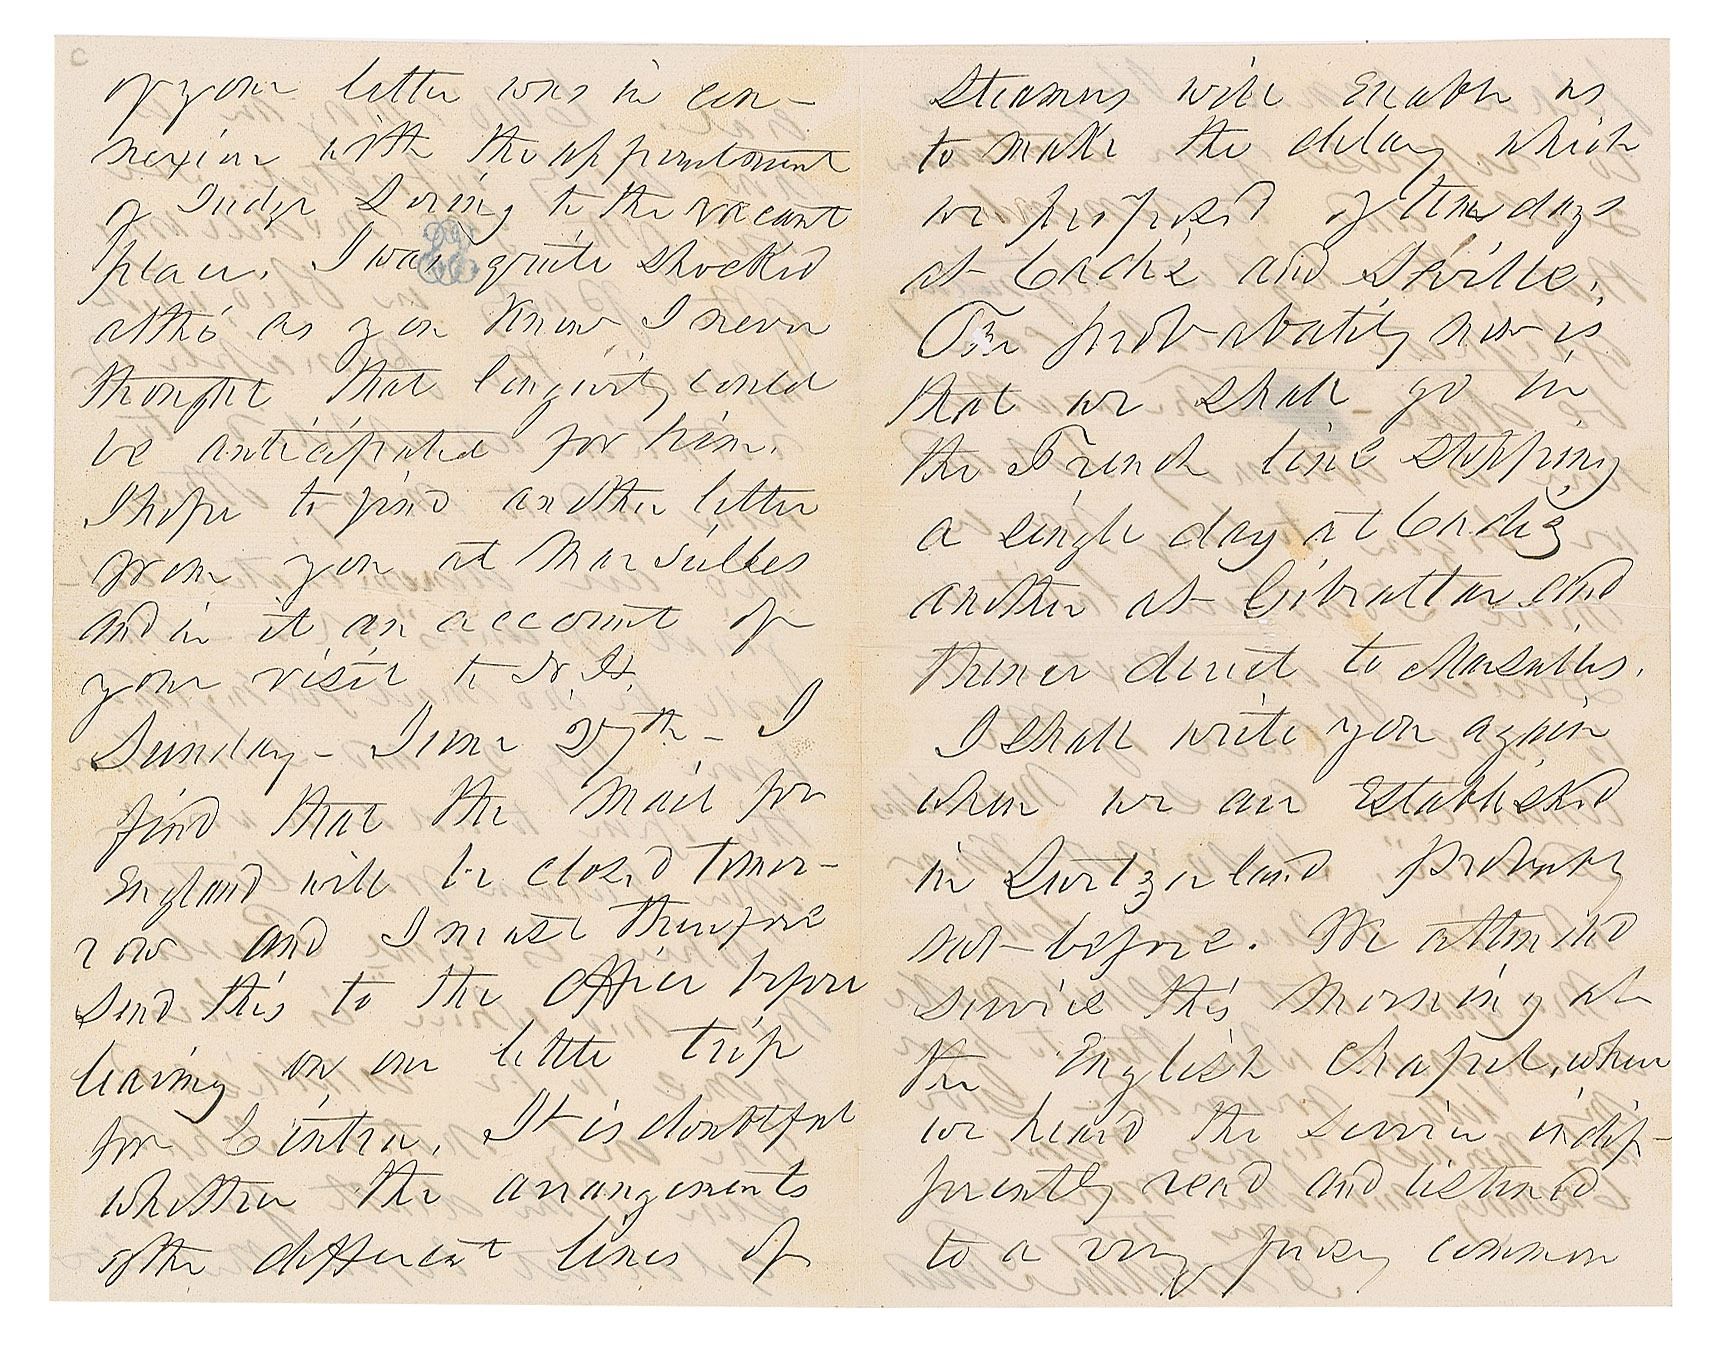 of your letter was in con-
nexion with the appointment
of Judge Loring to the vacant
place. I was quite shocked
altho' as you know I never
thought that longevity could
be anticipated for him.
I hope to find another letter
from you at Marseilles
and in it an account of
your visit to N. H.
Sunday - June 27th - I
find that the mail for
England will be closed tomor-
row and I must therefore
send this to the office before
leaving on our little trip
for Cintra. It is doubtful
whether the arrangements
of the different lines of
steamers will enable us
to make the delay which
we proposed of ten days
at Cadiz and Seville.
The probability now is
that we shall go in
the French line stopping
a single day at Cadiz
another at Gibraltar and
thence direct to Marseilles.
I shall write you again
when we are established
in Switzerland probably
not before. We attended
service this morning at
the English Chapel, where
we heard the service indif-
ferently read and listened
to a very prosy common